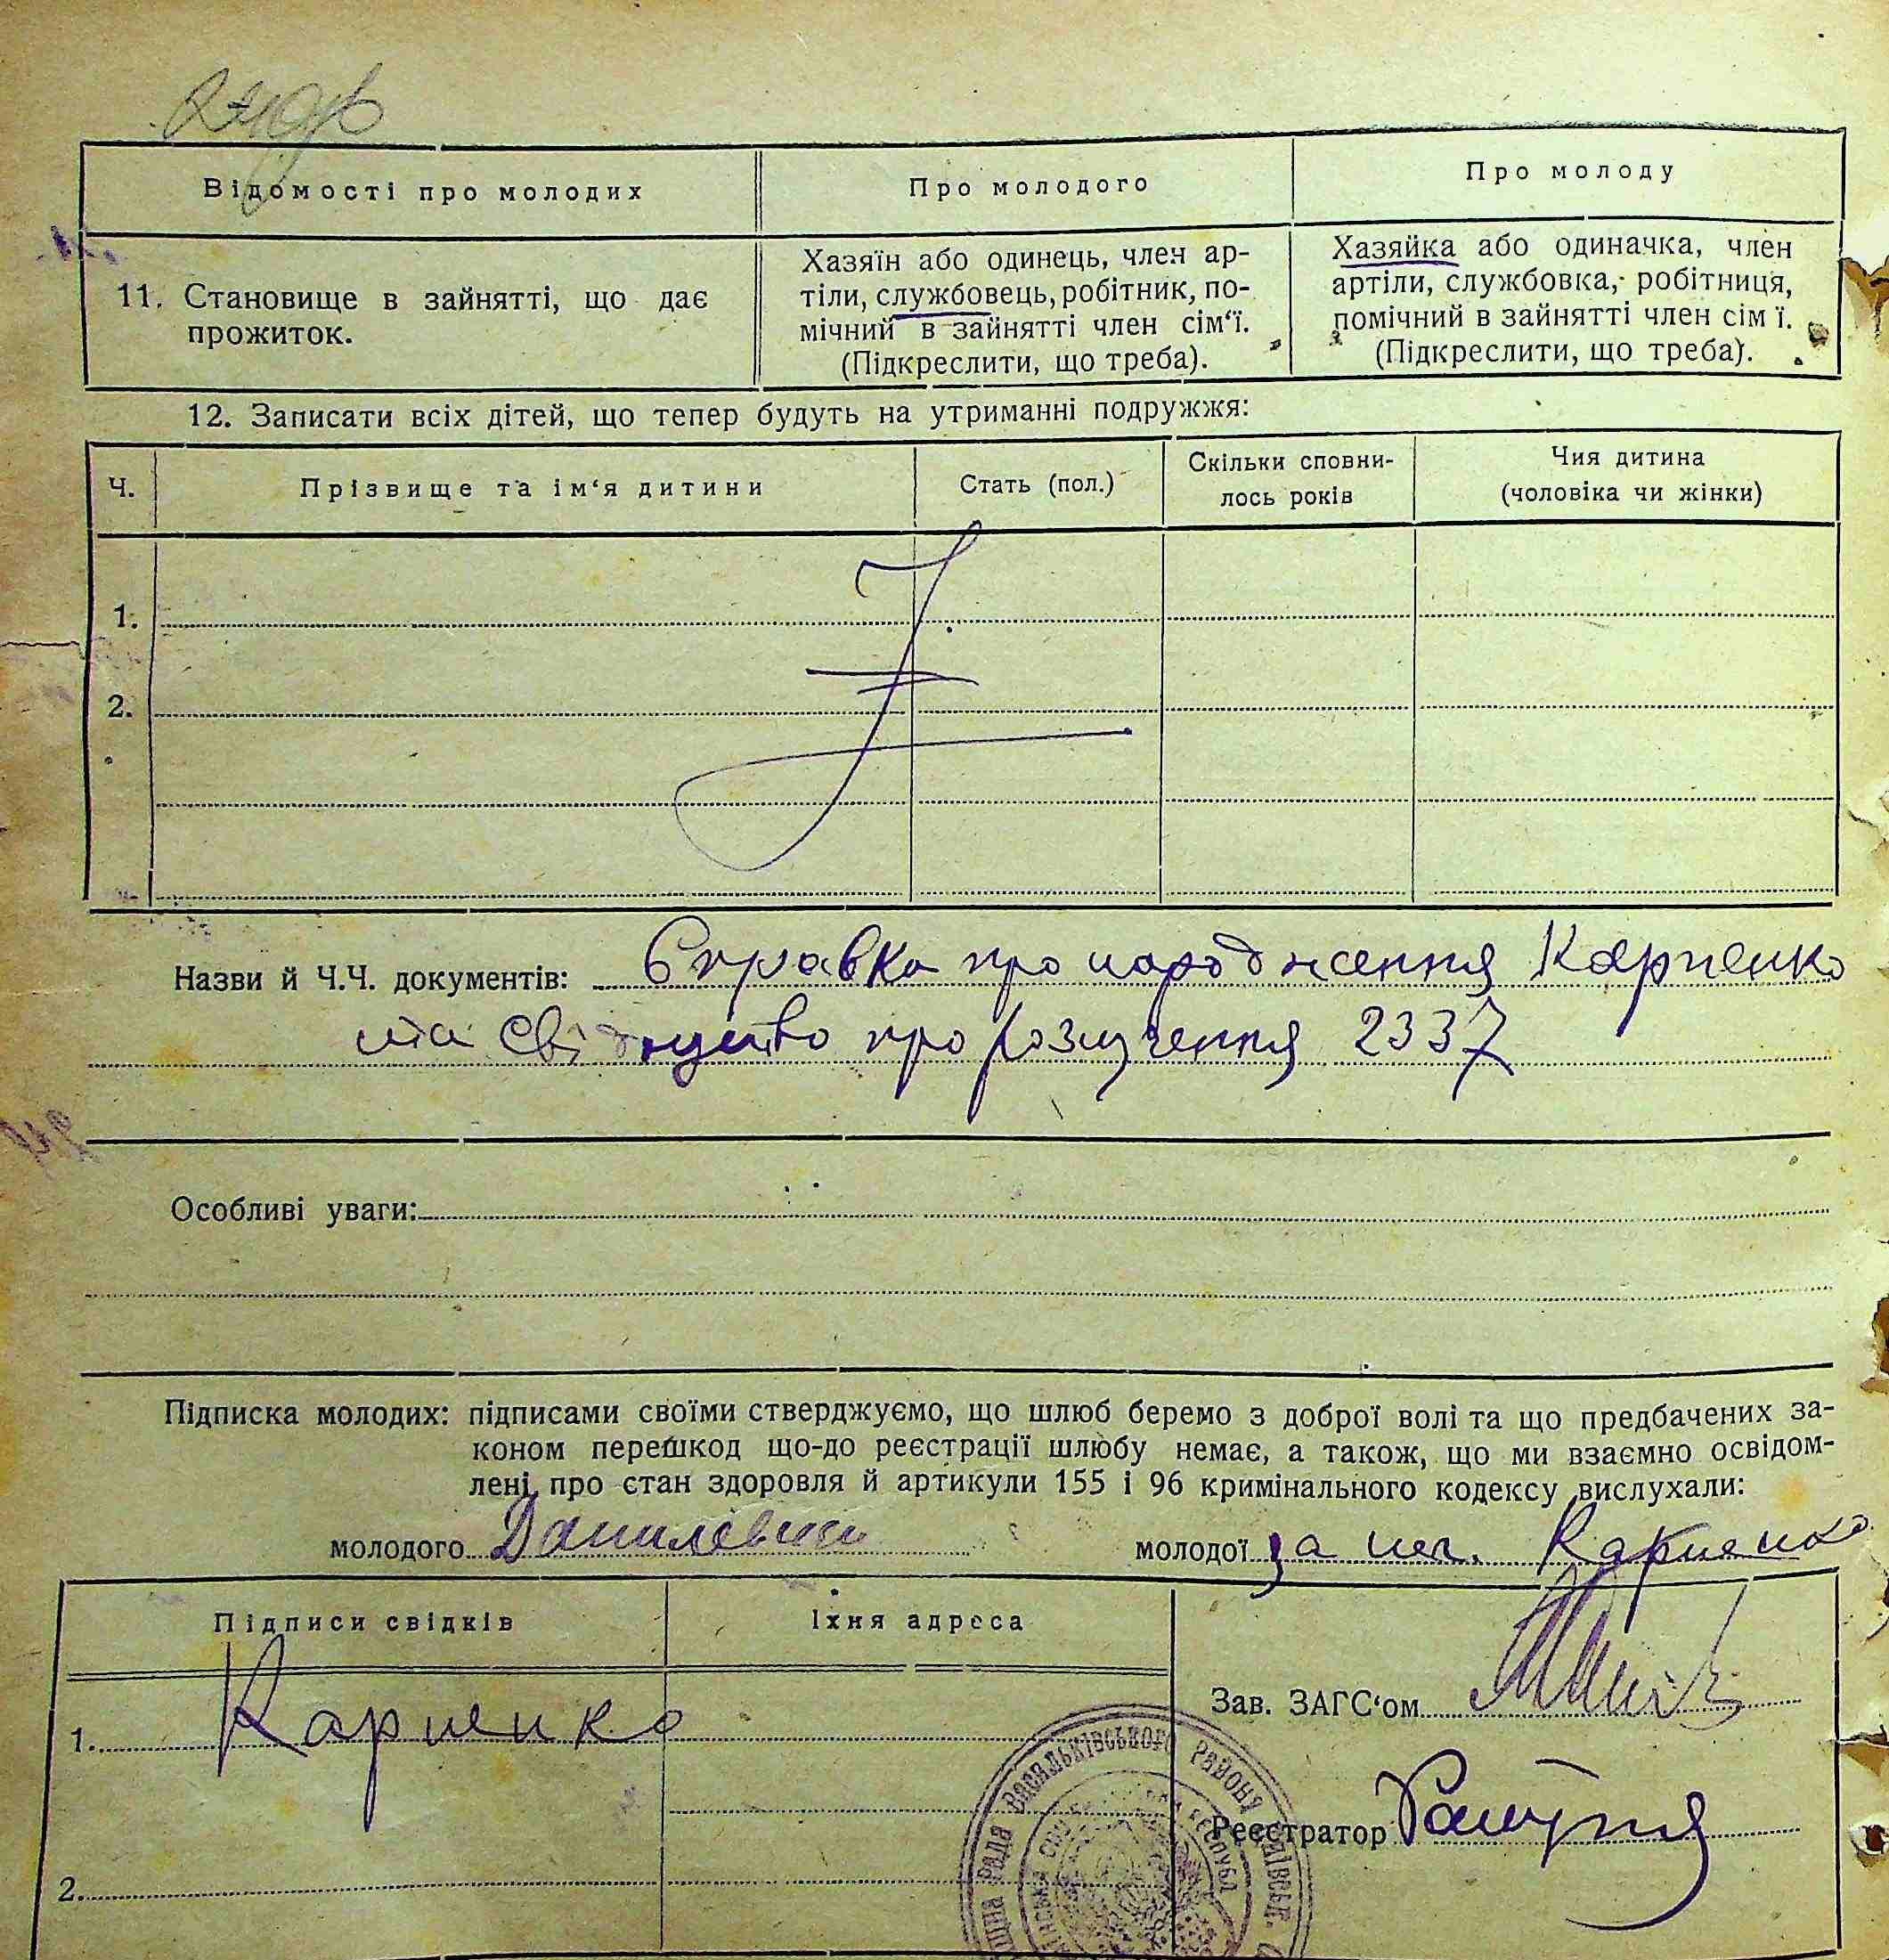 Відомості про молодих
Про молодого
Про молоду
11. Становище в зайнятті, що дає
прожиток.
Хазяїн або одинець, член ар-
тіли, службовець, робітник, по-
мічний в зайнятті член сім‘ї.
(Підкреслити, що треба).
Хазяйка або одиначка, член
артіли, службовка, робітниця,
помічний в зайнятті член сім ї.
(Підкреслити, що треба).
12. Записати всіх дітей, що тепер будуть на утриманні подружжя:
Ч.
Прізвище та ім‘я дитини
Стать (пол.)
Скільки сповни-
лось років
Чия дитина
(чоловіка чи жінки)
1.
2.
Назви й Ч.Ч. документів: Справка про народження Карпенко
та свідоцтво про розлучення 2337
Особливі уваги:
Підписка молодих: підписами своїми стверджуємо, що шлюб беремо з доброї волі та що предбачених за-
коном перешкод що-до реєстрації шлюбу немає, а також, що ми взаємно освідом-
лені про стан здоровля й артикули 155 і 96 кримінального кодексу вислухали:
молодого Данилевич молодої за нег. Карпенко
Підписи свідків
Їхня адреса
1. Карпенко
2.
Зав. ЗАГС‘ом
Реєстратор
РАДА ВАСИЛЬКІВСЬКОГО РАЙОНА КИЇВСЬК.